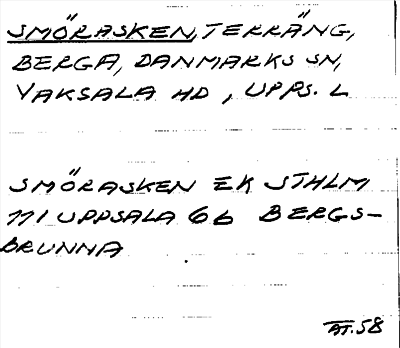 SMÖRASKEN, TERRÄNG,
BERGA, DANMARKS SN,
VAKSALA HD, UPPS. L
SMÖRASKEN EK STHLM
111 UPPSALA 6b BERGS-
BRUNNA
AT.58